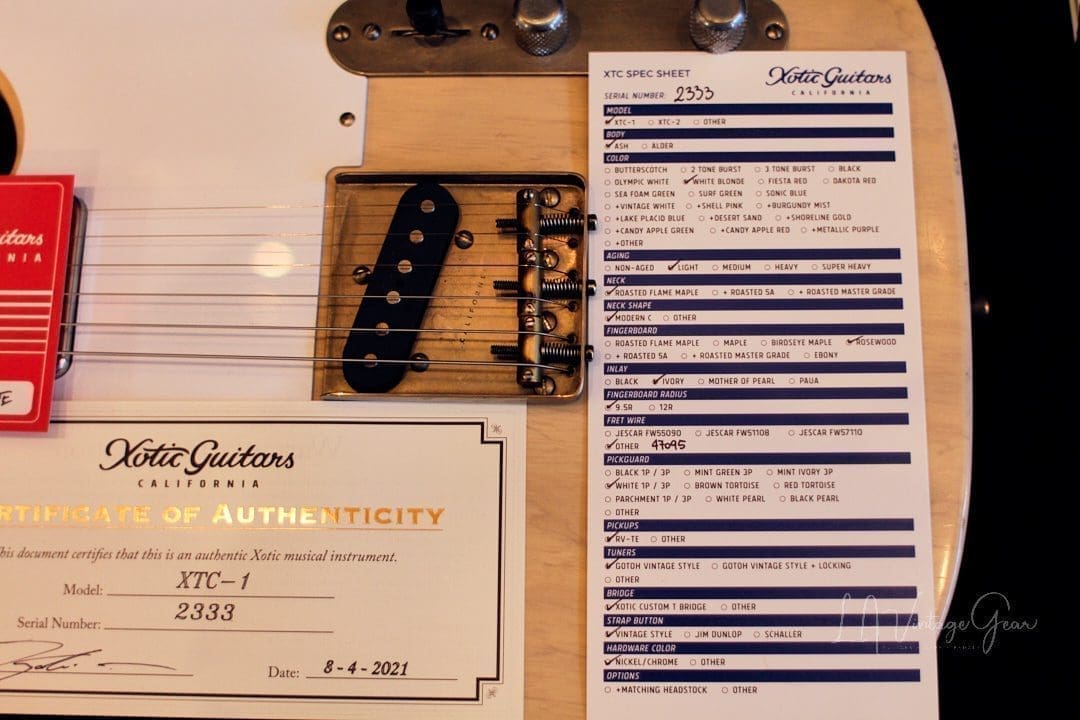 XTC SPEC SHEET
Xotic Guitars
CALIFORNIA
SERIAL NUMBER: 2333
MODEL
XTC-1 XTC-2 OTHER
BODY
ASH ALDER
COLOR
BUTTERSCOTCH 2 TONE BURST 3 TONE BURST BLACK
OLYMPIC WHITE WHITE BLONDE FIESTA RED DAKOTA RED
SEA FOAM GREEN SURF GREEN SONIC BLUE
+VINTAGE WHITE +SHELL PINK +BURGUNDY MIST
+LAKE PLACID BLUE +DESERT SAND +SHORELINE GOLD
+CANDY APPLE GREEN +CANDY APPLE RED +METALLIC PURPLE
+OTHER
AGING
NON-AGED LIGHT MEDIUM HEAVY SUPER HEAVY
NECK
ROASTED FLAME MAPLE + ROASTED 5A + ROASTED MASTER GRADE
NECK SHAPE
MODERN C OTHER
FINGERBOARD
ROASTED FLAME MAPLE MAPLE BIRDSEYE MAPLE ROSEWOOD
+ ROASTED 5A + ROASTED MASTER GRADE EBONY
INLAY
BLACK IVORY MOTHER OF PEARL PAUA
FINGERBOARD RADIUS
9.5R 12R
FRET WIRE
JESCAR FW55090 JESCAR FW51108 JESCAR FW57110
OTHER 47095
PICKGUARD
BLACK 1P / 3P MINT GREEN 3P MINT IVORY 3P
WHITE 1P / 3P BROWN TORTOISE RED TORTOISE
PARCHMENT 1P / 3P WHITE PEARL BLACK PEARL
OTHER
PICKUPS
RV-TE OTHER
TUNERS
GOTOH VINTAGE STYLE GOTOH VINTAGE STYLE + LOCKING
OTHER
BRIDGE
XOTIC CUSTOM T BRIDGE OTHER
STRAP BUTTON
VINTAGE STYLE JIM DUNLOP SCHALLER
HARDWARE COLOR
NICKEL/CHROME OTHER
OPTIONS
+MATCHING HEADSTOCK OTHER
CALIFORNIA
itars
NIA
TE
Xotic Guitars
CALIFORNIA
RTIFICATE OF AUTHENTICITY
his document certifies that this is an authentic Xotic musical instrument.
Model: XTC-1
Serial Number: 2333
Date: 8-4-2021
LA VintageGear